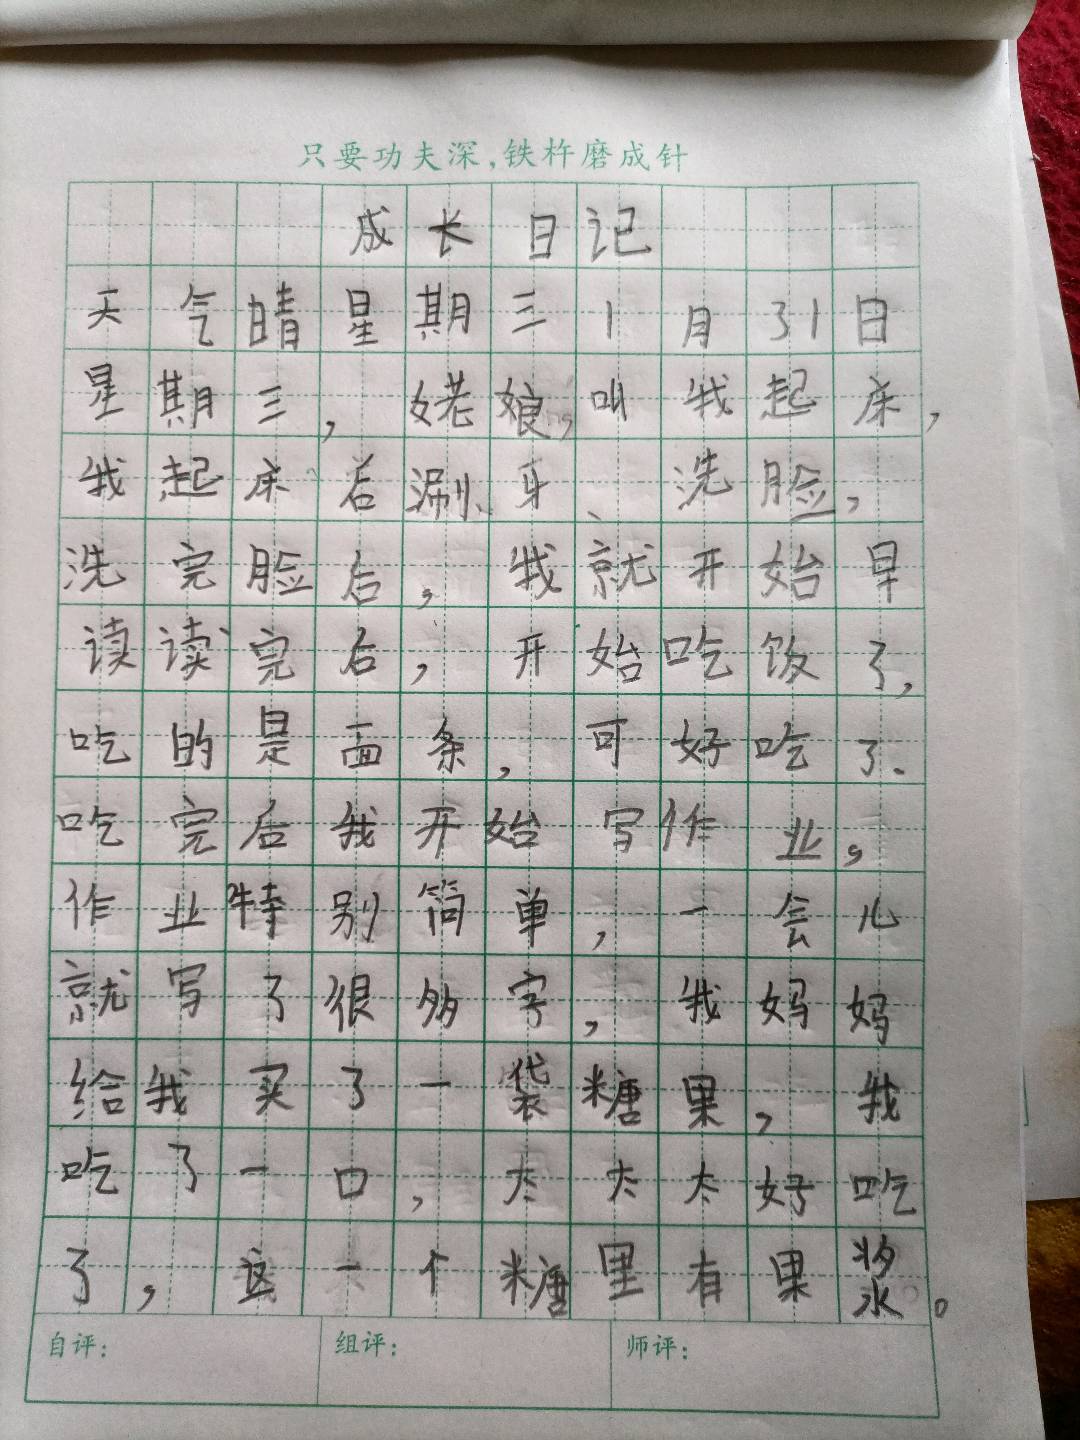 只要功夫深,铁杵磨成针
成长日记
天气晴星期三1月31日
星期三,姥娘,叫我起床,
我起床后涮牙、洗脸,
洗完脸后,我就开始早
读读完后,开始吃饭了,
吃的是面条,可好吃了.
吃完后我开始写作业,
作业特别简单,一会儿
就写了很多字,我妈妈
给我买了一袋糖果,我
吃了一口,太太太好吃
了,这一个糖里有果浆。
自评: 组评: 师评: